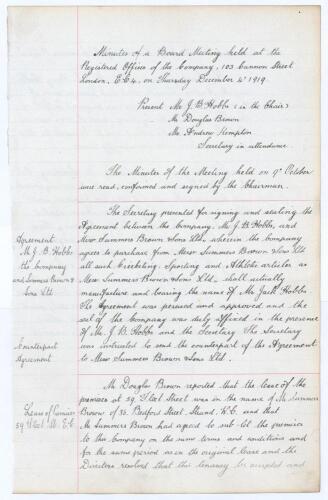 Minutes of a Board Meeting held at the
Registered Offices of the Company, 103 Cannon Street
London, E.C.4. on Thursday December 4th 1919.
Present Mr J. B Hobbs (in the Chair)
Mr Douglas Brown
Mr Andrew Kempton
Secretary in attendance.
The Minutes of the Meeting held on 9th October
were read, confirmed and signed by the Chairman.
Agreement
Mr J. B. Hobbs
the Company
and Summers Brown &
Sons Ltd
The Secretary presented for signing and sealing the
Agreement between the Company, Mr J B Hobbs, and
Messrs Summers Brown & Sons Ltd, wherein the Company
agrees to purchase from Messrs Summers Brown & Sons Ltd
all such Cricketing, Sporting and Athletic articles as
Messrs Summers Brown & Sons Ltd. shall actually
manufacture and bearing the name of Mr Jack Hobbs.
The Agreement was perused and approved and the
seal of the Company was duly affixed in the presence
of Mr J B Hobbs and the Secretary. The Secretary
was instructed to send the counterpart of the Agreement
to Messrs Summers Brown & Sons Ltd.
Counterpart
Agreement
Lease of Premises
59 Fleet St. E.C.
Mr Douglas Brown reported that the lease of the
premises at 59 Fleet Street was in the name of Mr Summers
Brown of 36 Bedford Street, Strand, W.C. and that
Mr Summers Brown had agreed to sub-let the premises
to the Company on the same terms and conditions and
for the same period as in the original Lease and the
Directors resolved that this tenancy be accepted and